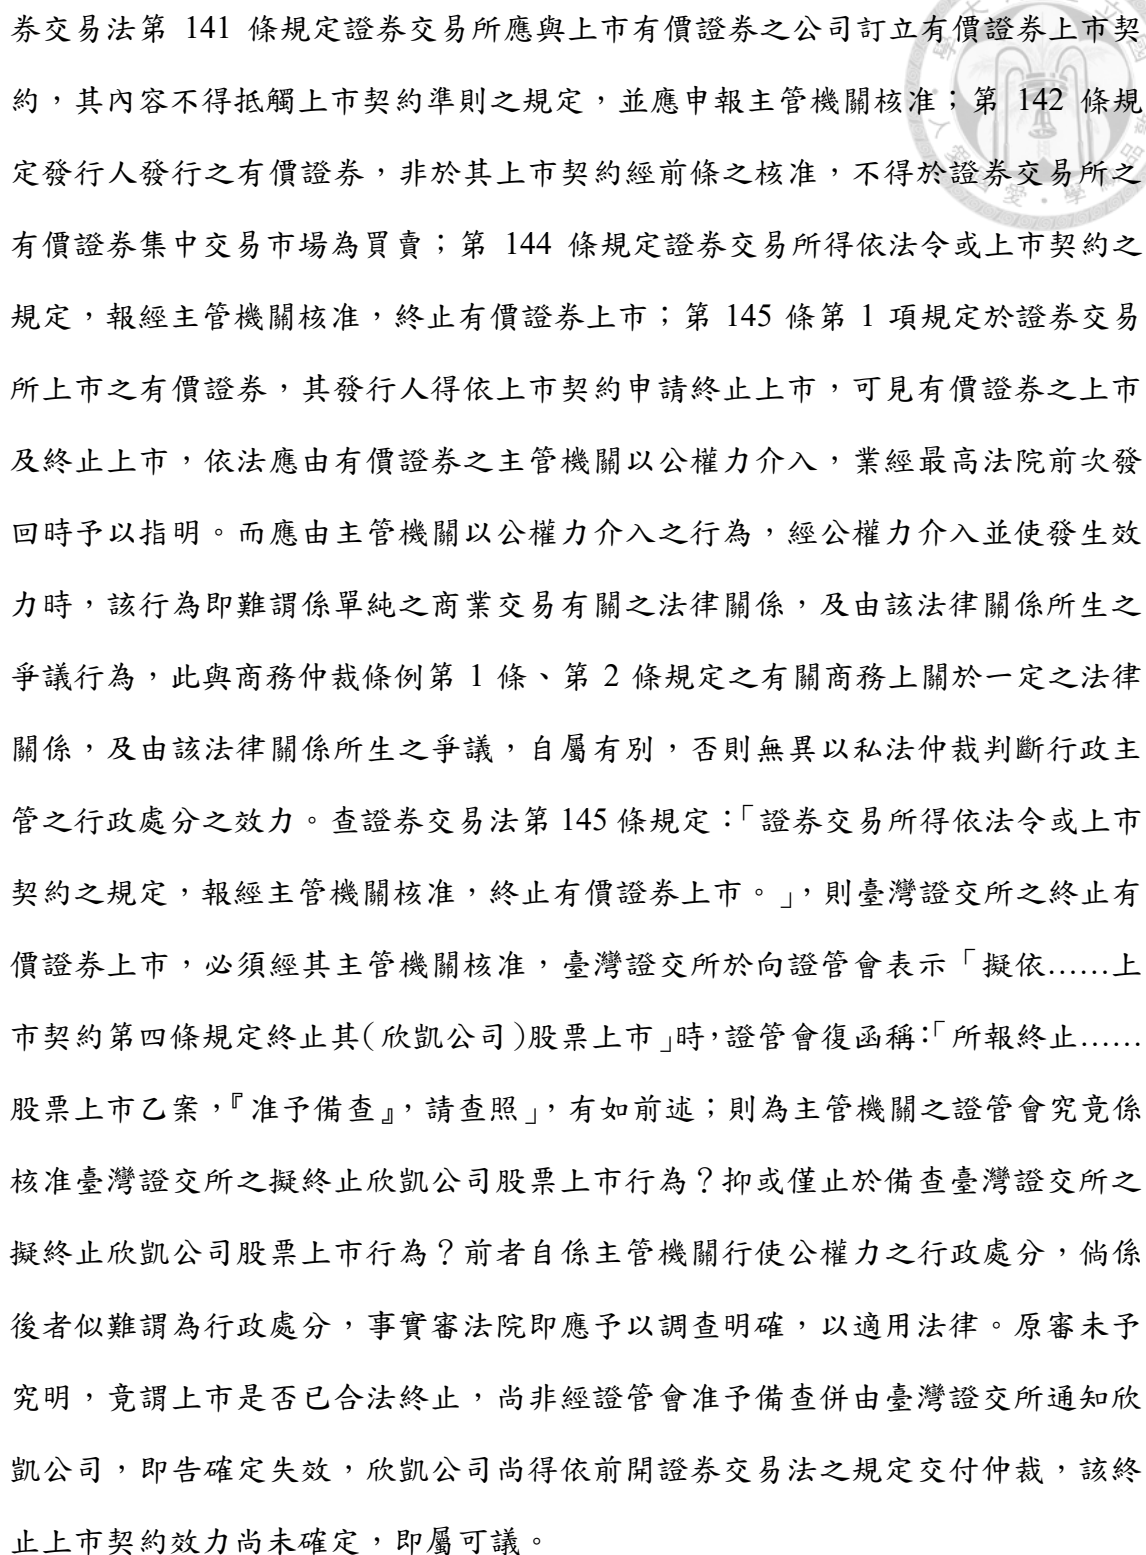 券交易法第 141 條規定證券交易所應與上市有價證券之公司訂立有價證券上市契
約，其內容不得抵觸上市契約準則之規定，並應申報主管機關核准；第 142 條規
定發行人發行之有價證券，非於其上市契約經前條之核准，不得於證券交易所之
有價證券集中交易市場為買賣；第 144 條規定證券交易所得依法令或上市契約之
規定，報經主管機關核准，終止有價證券上市；第 145 條第 1 項規定於證券交易
所上市之有價證券，其發行人得依上市契約申請終止上市，可見有價證券之上市
及終止上市，依法應由有價證券之主管機關以公權力介入，業經最高法院前次發
回時予以指明。而應由主管機關以公權力介入之行為，經公權力介入並使發生效
力時，該行為即難謂係單純之商業交易有關之法律關係，及由該法律關係所生之
爭議行為，此與商務仲裁條例第 1 條、第 2 條規定之有關商務上關於一定之法律
關係，及由該法律關係所生之爭議，自屬有別，否則無異以私法仲裁判斷行政主
管之行政處分之效力。查證券交易法第 145 條規定：「證券交易所得依法令或上市
契約之規定，報經主管機關核准，終止有價證券上市。」，則臺灣證交所之終止有
價證券上市，必須經其主管機關核准，臺灣證交所於向證管會表示「擬依……上
市契約第四條規定終止其（欣凱公司）股票上市」時，證管會復函稱：「所報終止……
股票上市乙案，『准予備查』，請查照」，有如前述；則為主管機關之證管會究竟係
核准臺灣證交所之擬終止欣凱公司股票上市行為？抑或僅止於備查臺灣證交所之
擬終止欣凱公司股票上市行為？前者自係主管機關行使公權力之行政處分，倘係
後者似難謂為行政處分，事實審法院即應予以調查明確，以適用法律。原審未予
究明，竟謂上市是否已合法終止，尚非經證管會准予備查併由臺灣證交所通知欣
凱公司，即告確定失效，欣凱公司尚得依前開證券交易法之規定交付仲裁，該終
止上市契約效力尚未確定，即屬可議。